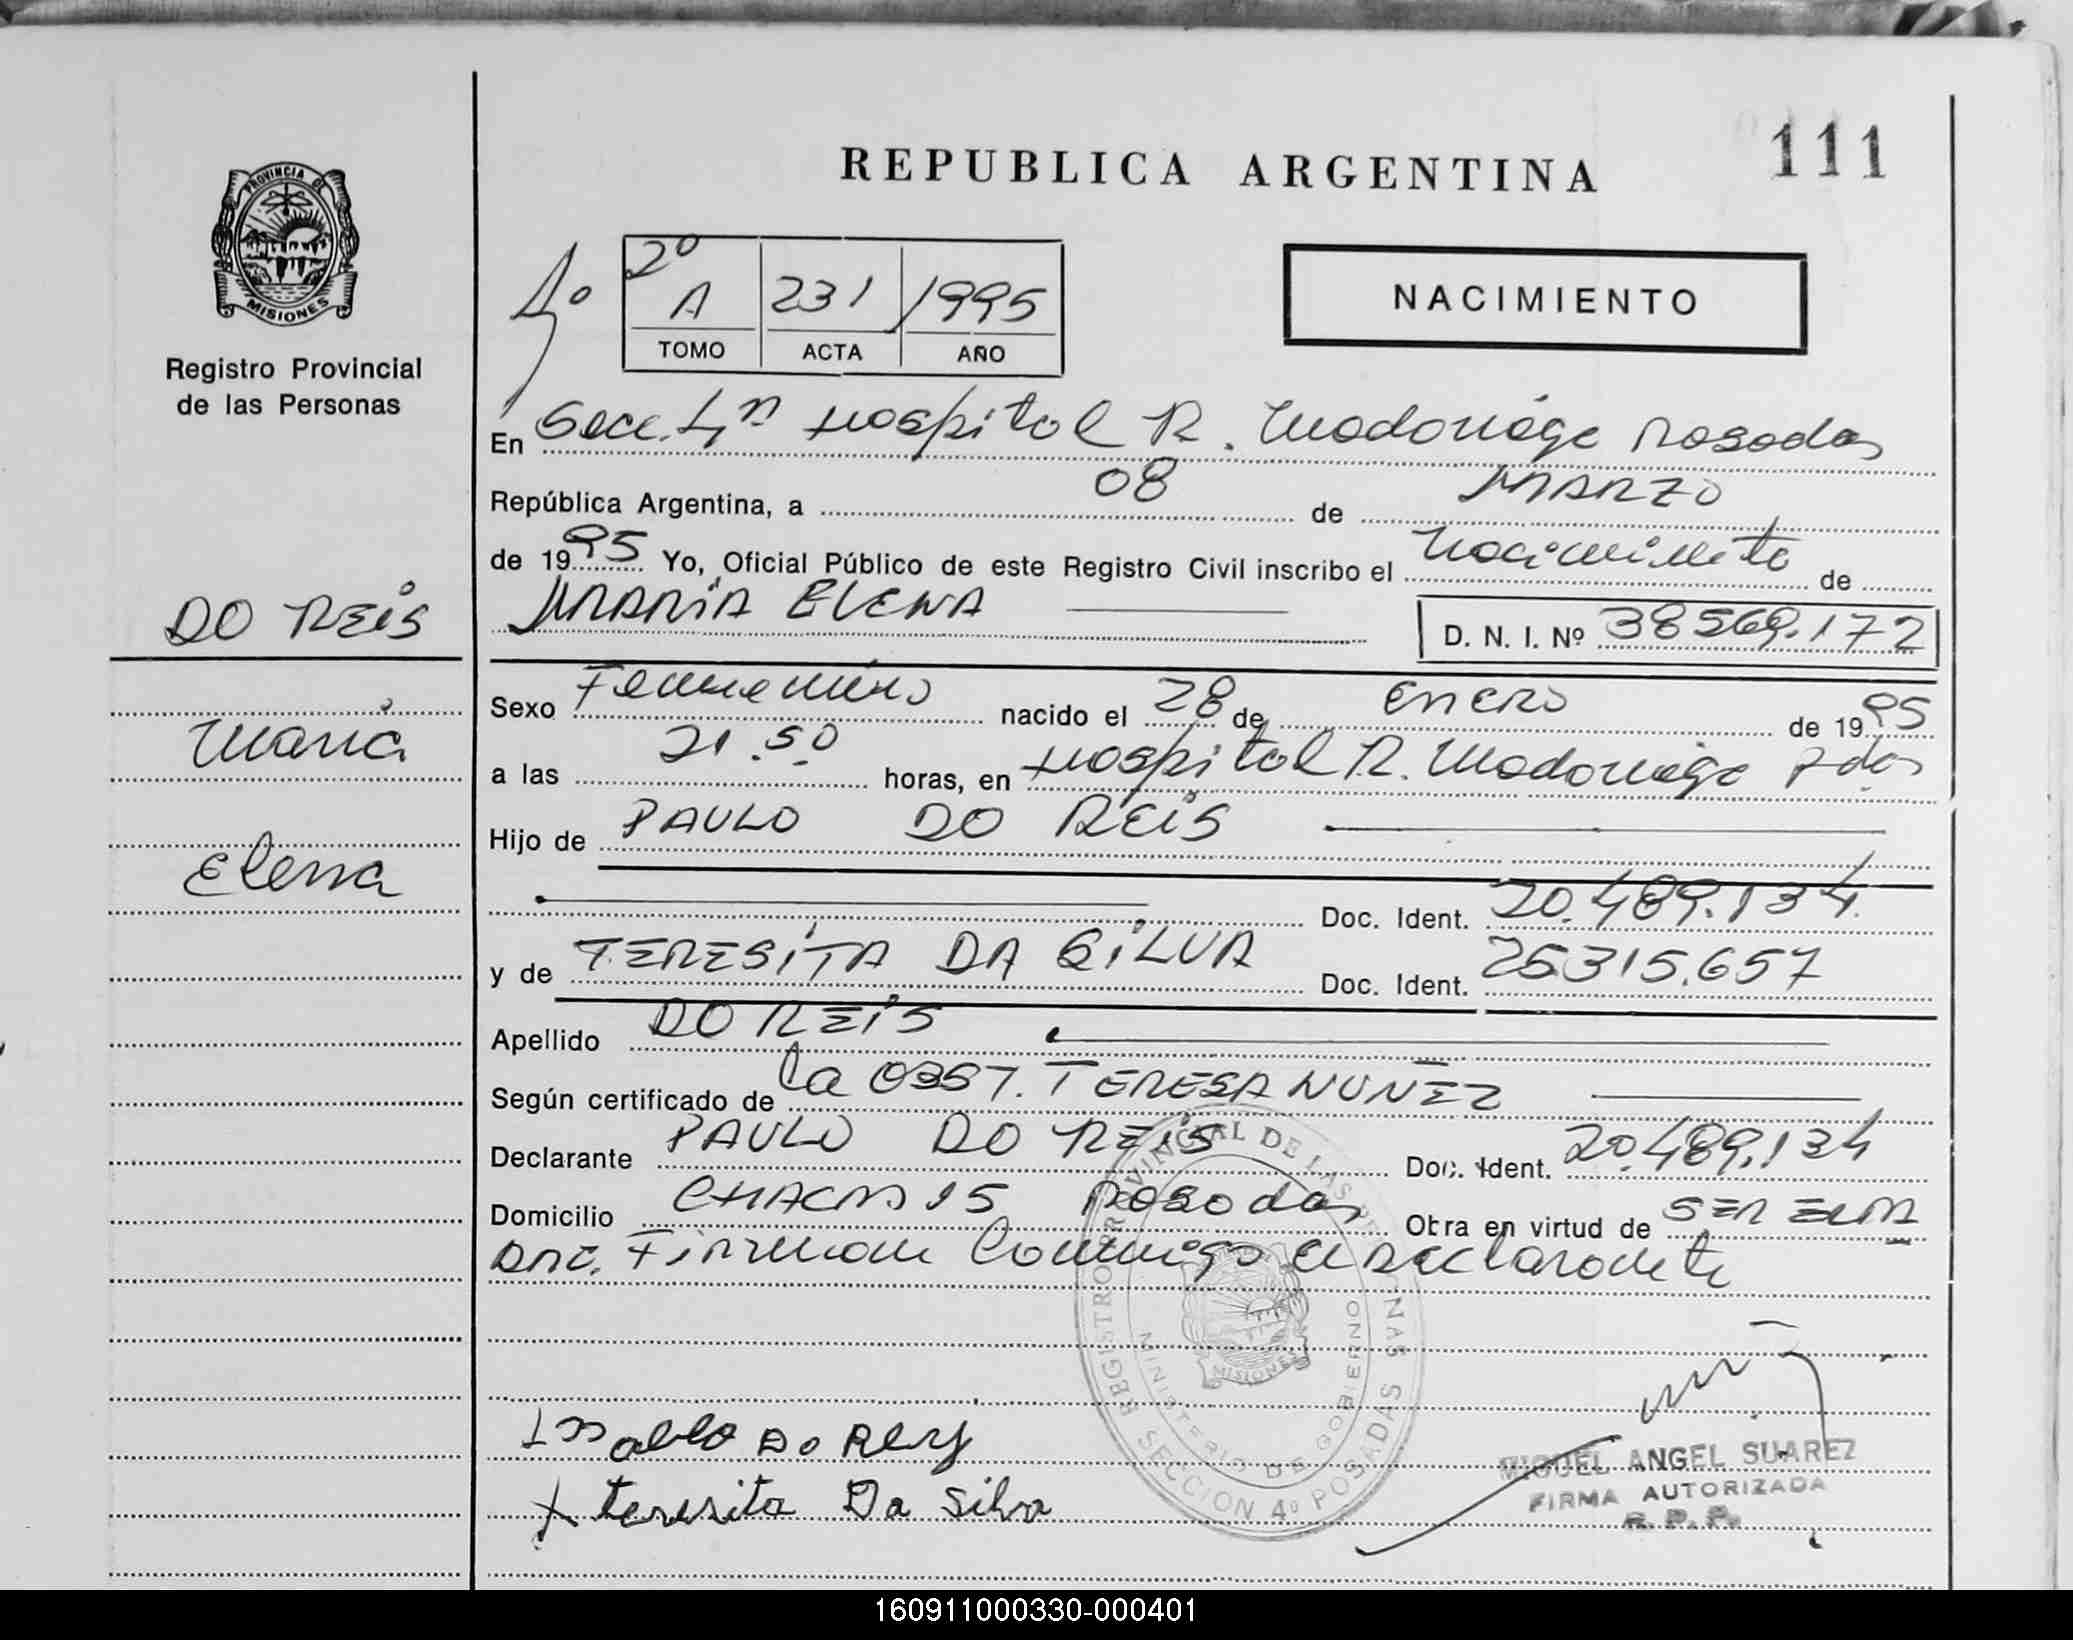 REPUBLICA ARGENTINA
111
PROVINCIA DE MISIONES
Registro Provincial
de las Personas
4º
2º A 231 1995
TOMO ACTA AÑO
NACIMIENTO
En Secc. 4ª Hospital R. Madariaga Posadas
República Argentina, a 08 de MARZO
de 1995 Yo, Oficial Público de este Registro Civil inscribo el Nacimiento de
MARIA ELENA
D. N. I. Nº 38569.172
DO REIS
Maria
Elena
Sexo Femenino nacido el 28 de Enero de 1995
a las 21.50 horas, en Hospital R. Madariaga Pdas
Hijo de PAULO DO REIS
Doc. Ident. 20.489.134
y de TERESITA DA SILVA Doc. Ident. 25315.657
Apellido DO REIS
Según certificado de la OBST. TERESA NUÑEZ
Declarante PAULO DO REIS Doc. Ident. 20.489.134
Domicilio CHACRA 15 Posadas Obra en virtud de SER EL PA
DRE. Firman Conmigo el Declarante
REGISTRO PROVINCIAL DE LAS PERSONAS
MINISTERIO DE GOBIERNO
MISIONES
SECCION 4º POSADAS
Pablo Do Rey
x teresita Da silva
MIGUEL ANGEL SUAREZ
FIRMA AUTORIZADA
R. P. P.
160911000330-000401